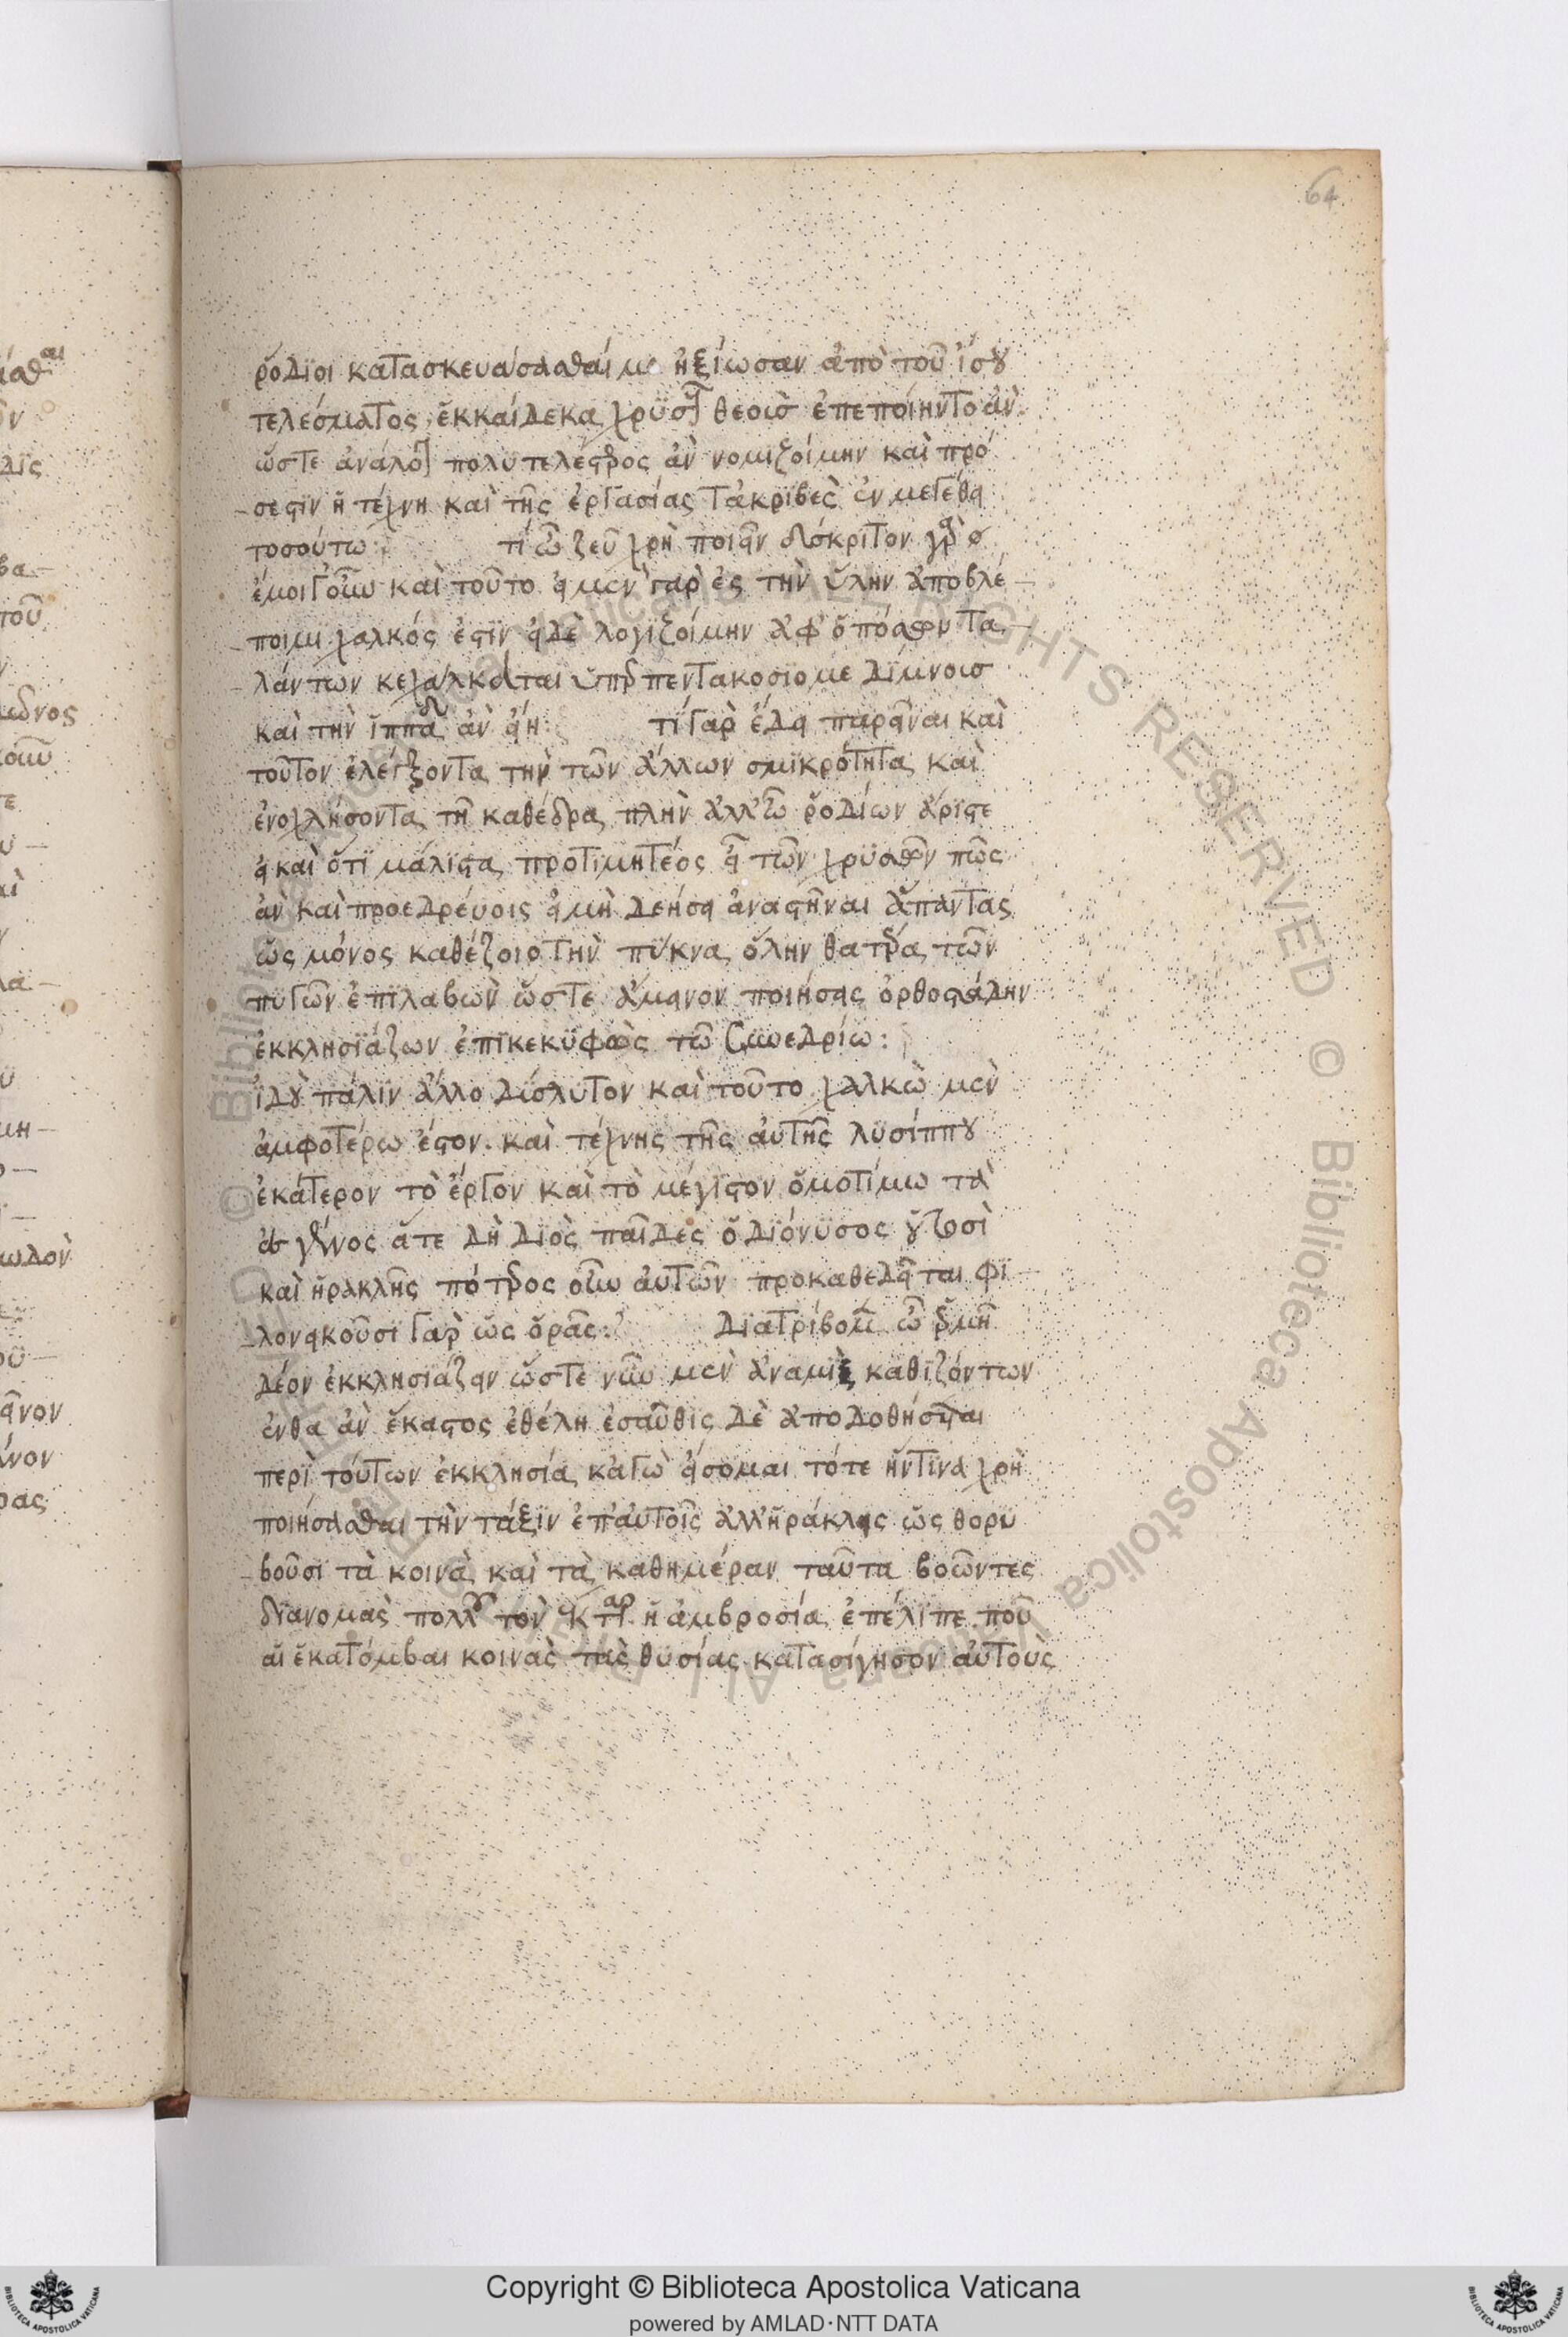 64
ῥόδϊοι κατασκευάσασθαί με ἠξίωσαν ἀπὸ τοῦ ἴσου
τελέσματος, ἑκκαίδεκα χρϋσοῦς θεοὺσ ἐπεποίηντο ἂν
ὥστε ἀνάλογον πολυτελέστερος ἂν νομιζοίμην καὶ πρό
σεστιν ἡ τέχνη καὶ τῆς ἐργασίας τἀκρϊβὲς ἐν μεγέθει
τοσούτω: τί ὦ ζεῦ χρὴ ποιεῖν δύσκριτον γὰρ
ἐμοὶ γοῦν καὶ τοῦτο εἰ μὲν γὰρ ἐς τὴν ὕλην ἀποβλέ
ποιμι χαλκός ἐστϊν εἰ δὲ λογιζοίμην ἀφ' ὁπόσων τα
λάντων κεχάλκευται ὑπὲρ πεντακοσϊομεδίμνουσ
καὶ τὴν ἱππάδα ἂν εἴη: τί γὰρ ἔδει παρεῖναι καὶ
τοῦτον ἐλέγξοντα τὴν τῶν ἄλλων σμϊκρότητα καὶ
ἐνοχλήσοντα τῆ καθέδρα πλὴν ἀλλ' ὦ ῥοδίων ἄριστε
εἰ καὶ ὅτϊ μάλϊστα προτϊμητέος εἶ τῶν χρϋσῶν πῶς
ἂν καὶ προεδρεύοις εἰ μὴ δεήσει ἀναστῆναι ἅπαντας
ὡς μόνος καθέζοιο τὴν πύκνα ὅλην θατέρα τῶν
πυγῶν ἐπιλαβὼν ὥστε ἄμεινον ποιήσεις ὀρθοστάδην
ἐκκλησϊάζων ἐπϊκεκϋφὼς τῶ συνεδρίω:
ἰδοὺ πάλϊν ἄλλο δύσλυτον καὶ τοῦτο χαλκὼ μὲν
ἀμφοτέρω ἐστον. καὶ τέχνης τῆς αὐτῆς λϋσίππου
ἑκάτερον τὸ ἔργον καὶ τὸ μέγϊστον ὁμοτίμω τὰ
ἐς γένος ἅτε δὴ δϊὸς παῖδες ὁ δϊόνϋσος οὑτοσὶ
καὶ ἡρακλῆς πότερος οὖν αὐτῶν προκαθεδεῖται φϊ
λονεικοῦσι γὰρ ὡς ὁρᾶς: Δϊατρίβομεν ὦ ἑρμῆ
δέον ἐκκλησϊάζειν ὥστε νῦν μὲν ἀναμὶξ καθϊζόντων
ἔνθα ἂν ἕκαστος ἐθέλη ἐσαῦθις δὲ ἀποδοθήσεται
περὶ τούτων ἐκκλησία κἀγὼ εἴσομαι τότε ἥντϊνα χρὴ
ποιήσασθαι τὴν τάξϊν ἐπ' αὐτοῖς ἀλλ' ἡράκλεις ὡς θορυ
βοῦσι τὰ κοινὰ καὶ τὰ καθημέραν ταῦτα βοῶντες
δϊανομάς ποῦ τὸν νέκταρ ἡ ἀμβροσία ἐπέλϊπε. ποῦ
αἱ ἑκατόμβαι κοινὰς τὰς θυσίας κατασίγησον αὐτοὺς
Copyright © Biblioteca Apostolica Vaticana
powered by AMLAD·NTT DATA